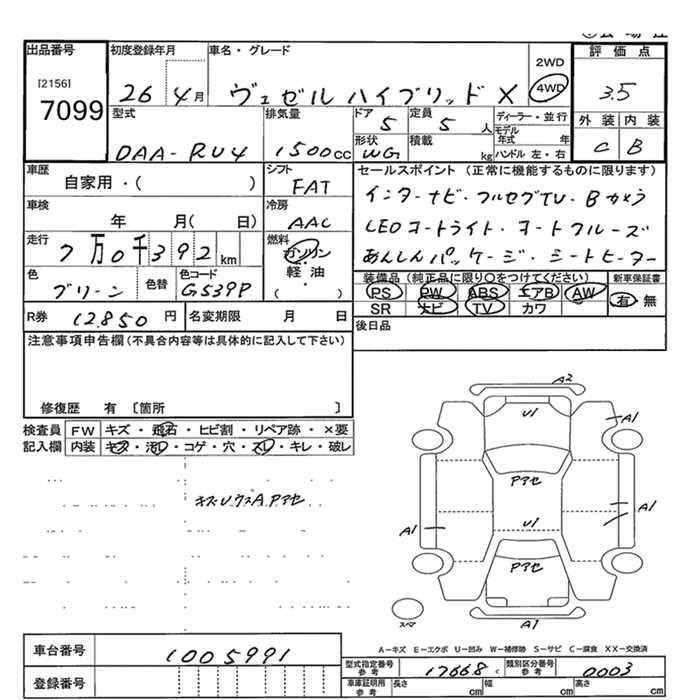 出品番号 初度登録年月 車名・グレード 評価点
[2156]
7099
26 4月 ヴェゼル ハイブリッド X
2WD
4WD
3.5
外装 内装
C B
型式 排気量 ドア 定員 ディーラー・並行
DAA-RU4 1500cc 5 5人
モデル年式 年
形状 積載
WG kg
ハンドル 左・右
車歴 シフト セールスポイント (正常に機能するものに限ります)
自家用・( ) FAT
インターナビ・フルセグTV・Bカメラ
車検 冷房
年 月( 日) AAC
LEDオートライト・オートクルーズ
走行 燃料
7万0千392km ガソリン
軽油
・
( )
あんしんパッケージ・シートヒーター
色 色替 色コード
グリーン G539P
装備品 (純正品に限り○をつけてください) 新車保証書
PS PW ABS エアB AW 有・無
SR ナビ TV カワ
R券 12,850円 名変期限 月 日
後日品
注意事項申告欄(不具合内容等は具体的に記入して下さい)
修復歴 有 [箇所 ]
検査員 FW キズ・飛石・ヒビ割・リペア跡・×要
記入欄 内装 キズ・汚れ・コゲ・穴・スレ・キレ・破レ
A2
U1
A1
Pアセ
A1
A1
U1
Pアセ
A1
スペア
A-キズ E-エクボ U-凹み W-補修跡 S-サビ C-腐食 XX-交換済
車台番号 1005991
型式指定番号 参考 17668 類別区分番号 参考 0003
登録番号
車庫証明用 参考 長さ cm 幅 cm 高さ cm